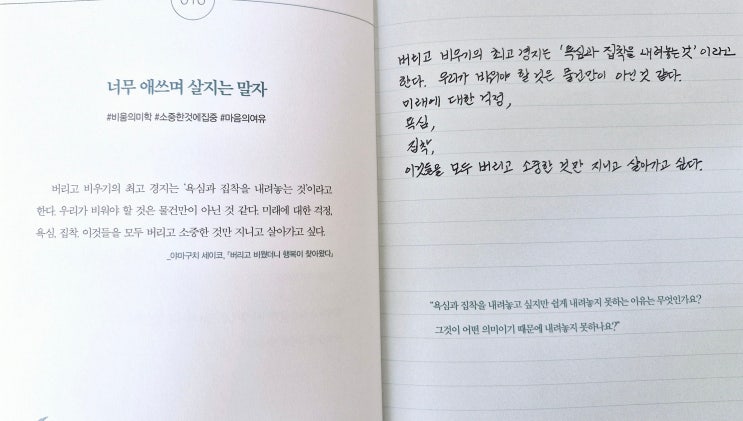 너무 애쓰며 살지는 말자
#비움의미학 #소중한것에집중 #마음의여유
버리고 비우기의 최고 경지는 '욕심과 집착을 내려놓는 것'이라고
한다. 우리가 비워야 할 것은 물건만이 아닌 것 같다. 미래에 대한 걱정,
욕심, 집착. 이것들을 모두 버리고 소중한 것만 지니고 살아가고 싶다.
_야마구치 세이코, 『버리고 비웠더니 행복이 찾아왔다』
버리고 비우기의 최고 경지는 '욕심과 집착을 내려놓는 것'이라고
한다. 우리가 비워야 할 것은 물건만이 아닌 것 같다.
미래에 대한 걱정,
욕심,
집착,
이것들을 모두 버리고 소중한 것만 지니고 살아가고 싶다.
"욕심과 집착을 내려놓고 싶지만 쉽게 내려놓지 못하는 이유는 무엇인가요?
그것이 어떤 의미이기 때문에 내려놓지 못하나요?"